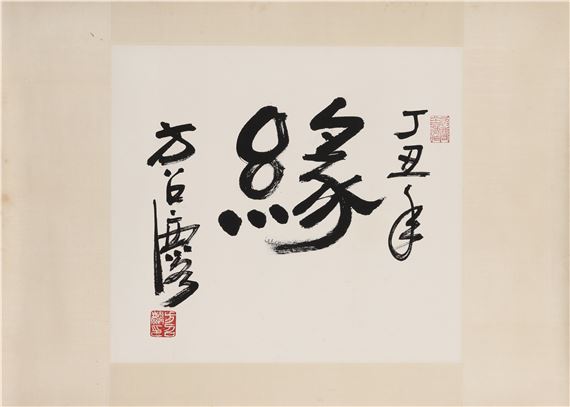 丁丑年
緣
方召麐